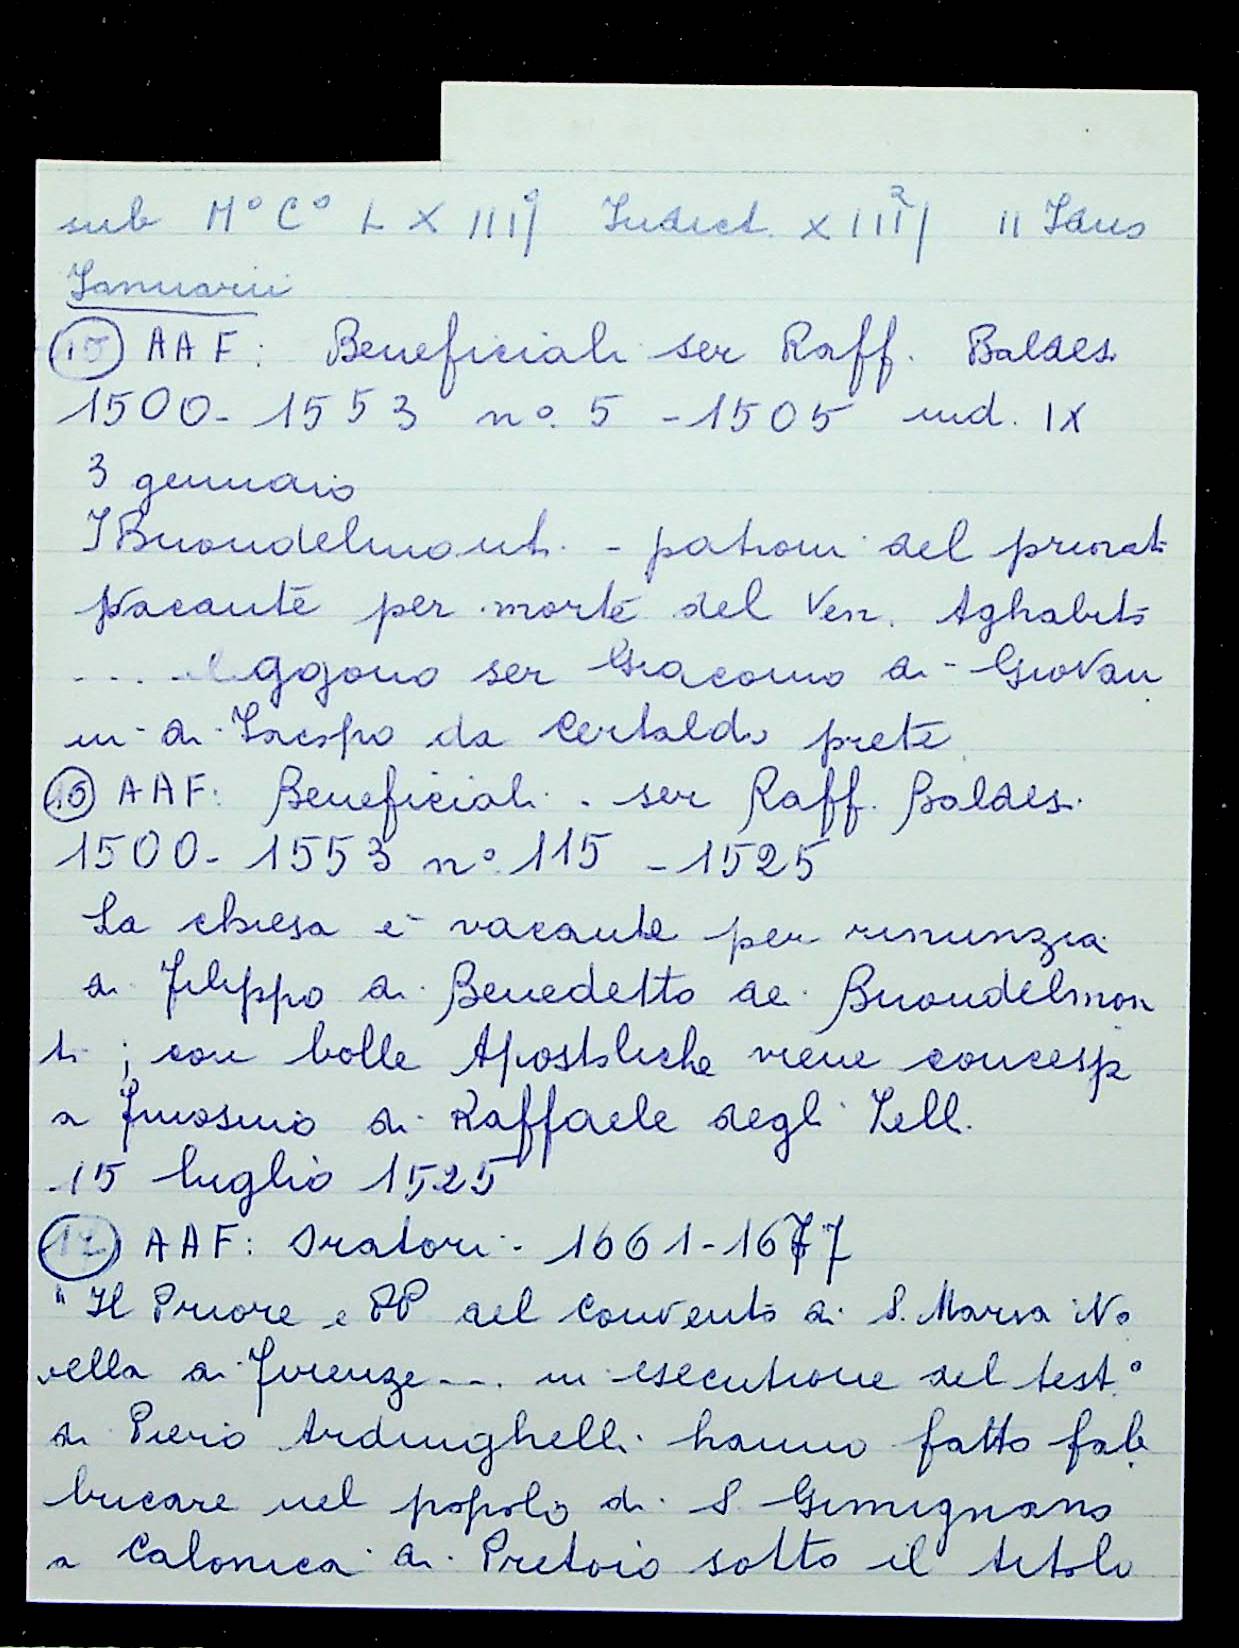 sub M° C° L X IIIJ Indict. XIIIJ II Idus
Januarii
(15) AAF: Beneficiali ser Raff. Baldes.
1500-1553 n°. 5 - 1505 ind. IX
3 gennaio
I Buondelmonti - patroni del priorat
vacante per morte del Ven. Aghabito
.... eleggono ser Giacomo di Giovan
ni di Iacopo da Certaldo prete
(16) AAF: Beneficiali. ser Raff. Baldes.
1500-1553 n°. 115 - 1525
La chiesa è vacante per rinunzia
di Filippo di Benedetto de' Buondelmon
ti; con bolle Apostoliche viene concessa
a di Raffaele degli
15 luglio 1525
(17) AAF: Oratori - 1661-1677
"Il Priore e PP del convento di S. Maria No
vella di Firenze.... in esecutione del test.°
di Piero Ardinghelli hanno fatto fab
bricare nel popolo di S. Gimignano
a Calonica di Pretoio sotto il titolo